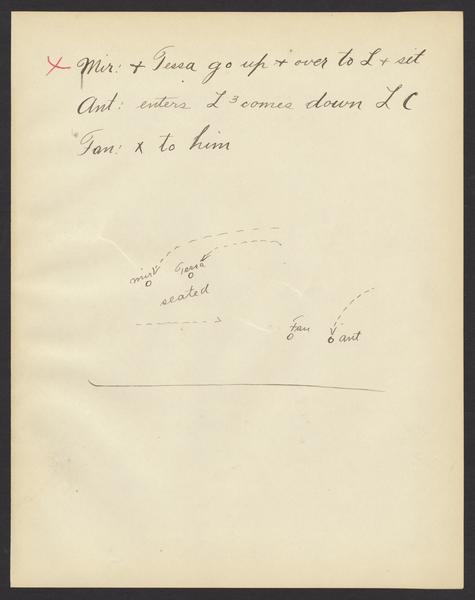 x Mir: + Tessa go up + over to L + sit
Ant: enters L 3 comes down L C
Fan: x to him
mir Tessa
seated
Fan
ant